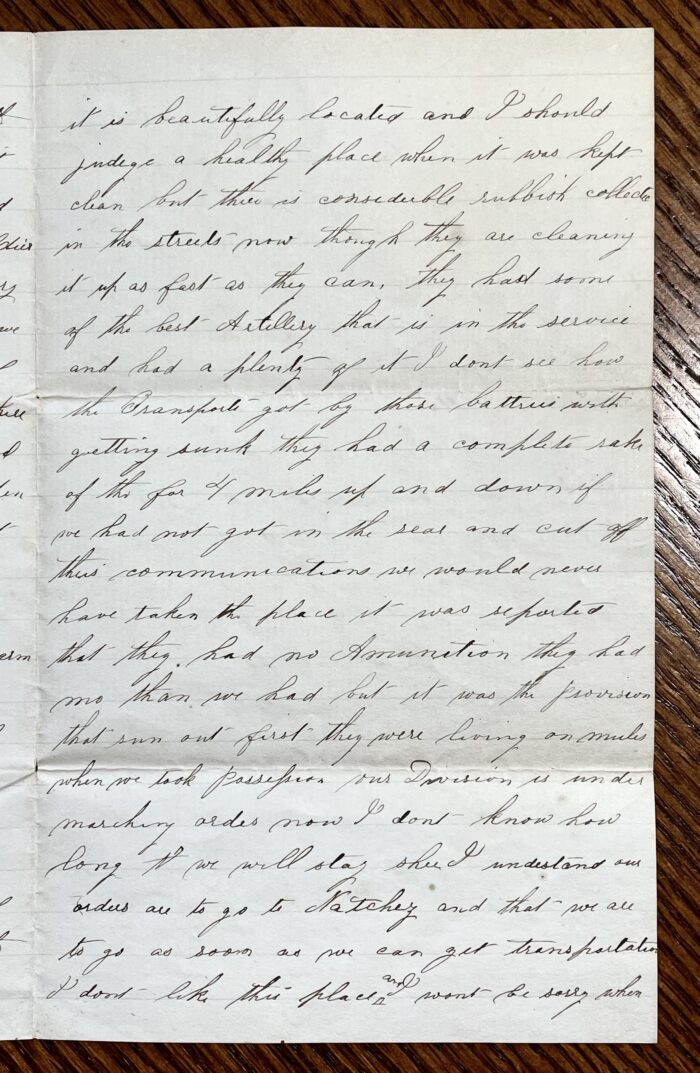 it is beautifully located and I should
judege a healthy place when it was kept
clean but thier is considerble rubbish collecte
in the streets now though they are cleaning
it up as fast as they can, they had some
of the best Artillery that is in the service
and had a plenty of it I dont see how
the Transports got by those battries with
getting sunk they had a complete rake
of the for 4 miles up and down if
we had not got in the rear and cut off
thier communications we would never
have taken the place it was reported
that they had no Amunition they had
mo than we had but it was the provision
that run out first they were living on mules
when we took possession our Division is under
marching order now I dont know how
long we will stay I undestand our
orders are to go to Natchez and that we are
to go as soon as we can get transportation
I dont like this place and I wont be sorry when
dier
ry
we
en
erm